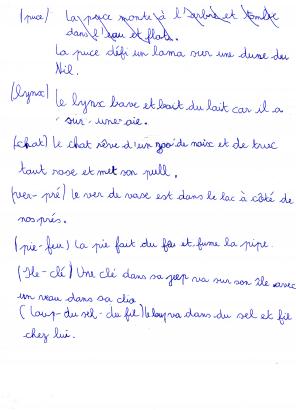 (puce) La puce monte à l'arbre et tombe
dans l'eau et flotte.
La puce défi un lama sur une dune du
Nil.
(lynx) le lynx bave et boit du lait car il a
sur une aie.
(chat) le chat rêve d'un zoo de noix et de truc
tout rose et met son pull.
(ver-pré) le ver de vase est dans le lac à côté de
nos prés.
(pie-feu) La pie fait du feu et fume la pipe.
(Ile-clé) Une clé dans sa jeep va sur son île avec
un veau dans sa clio
(loup-du sel-du fil) le loup va dans du sel et file
chez lui.